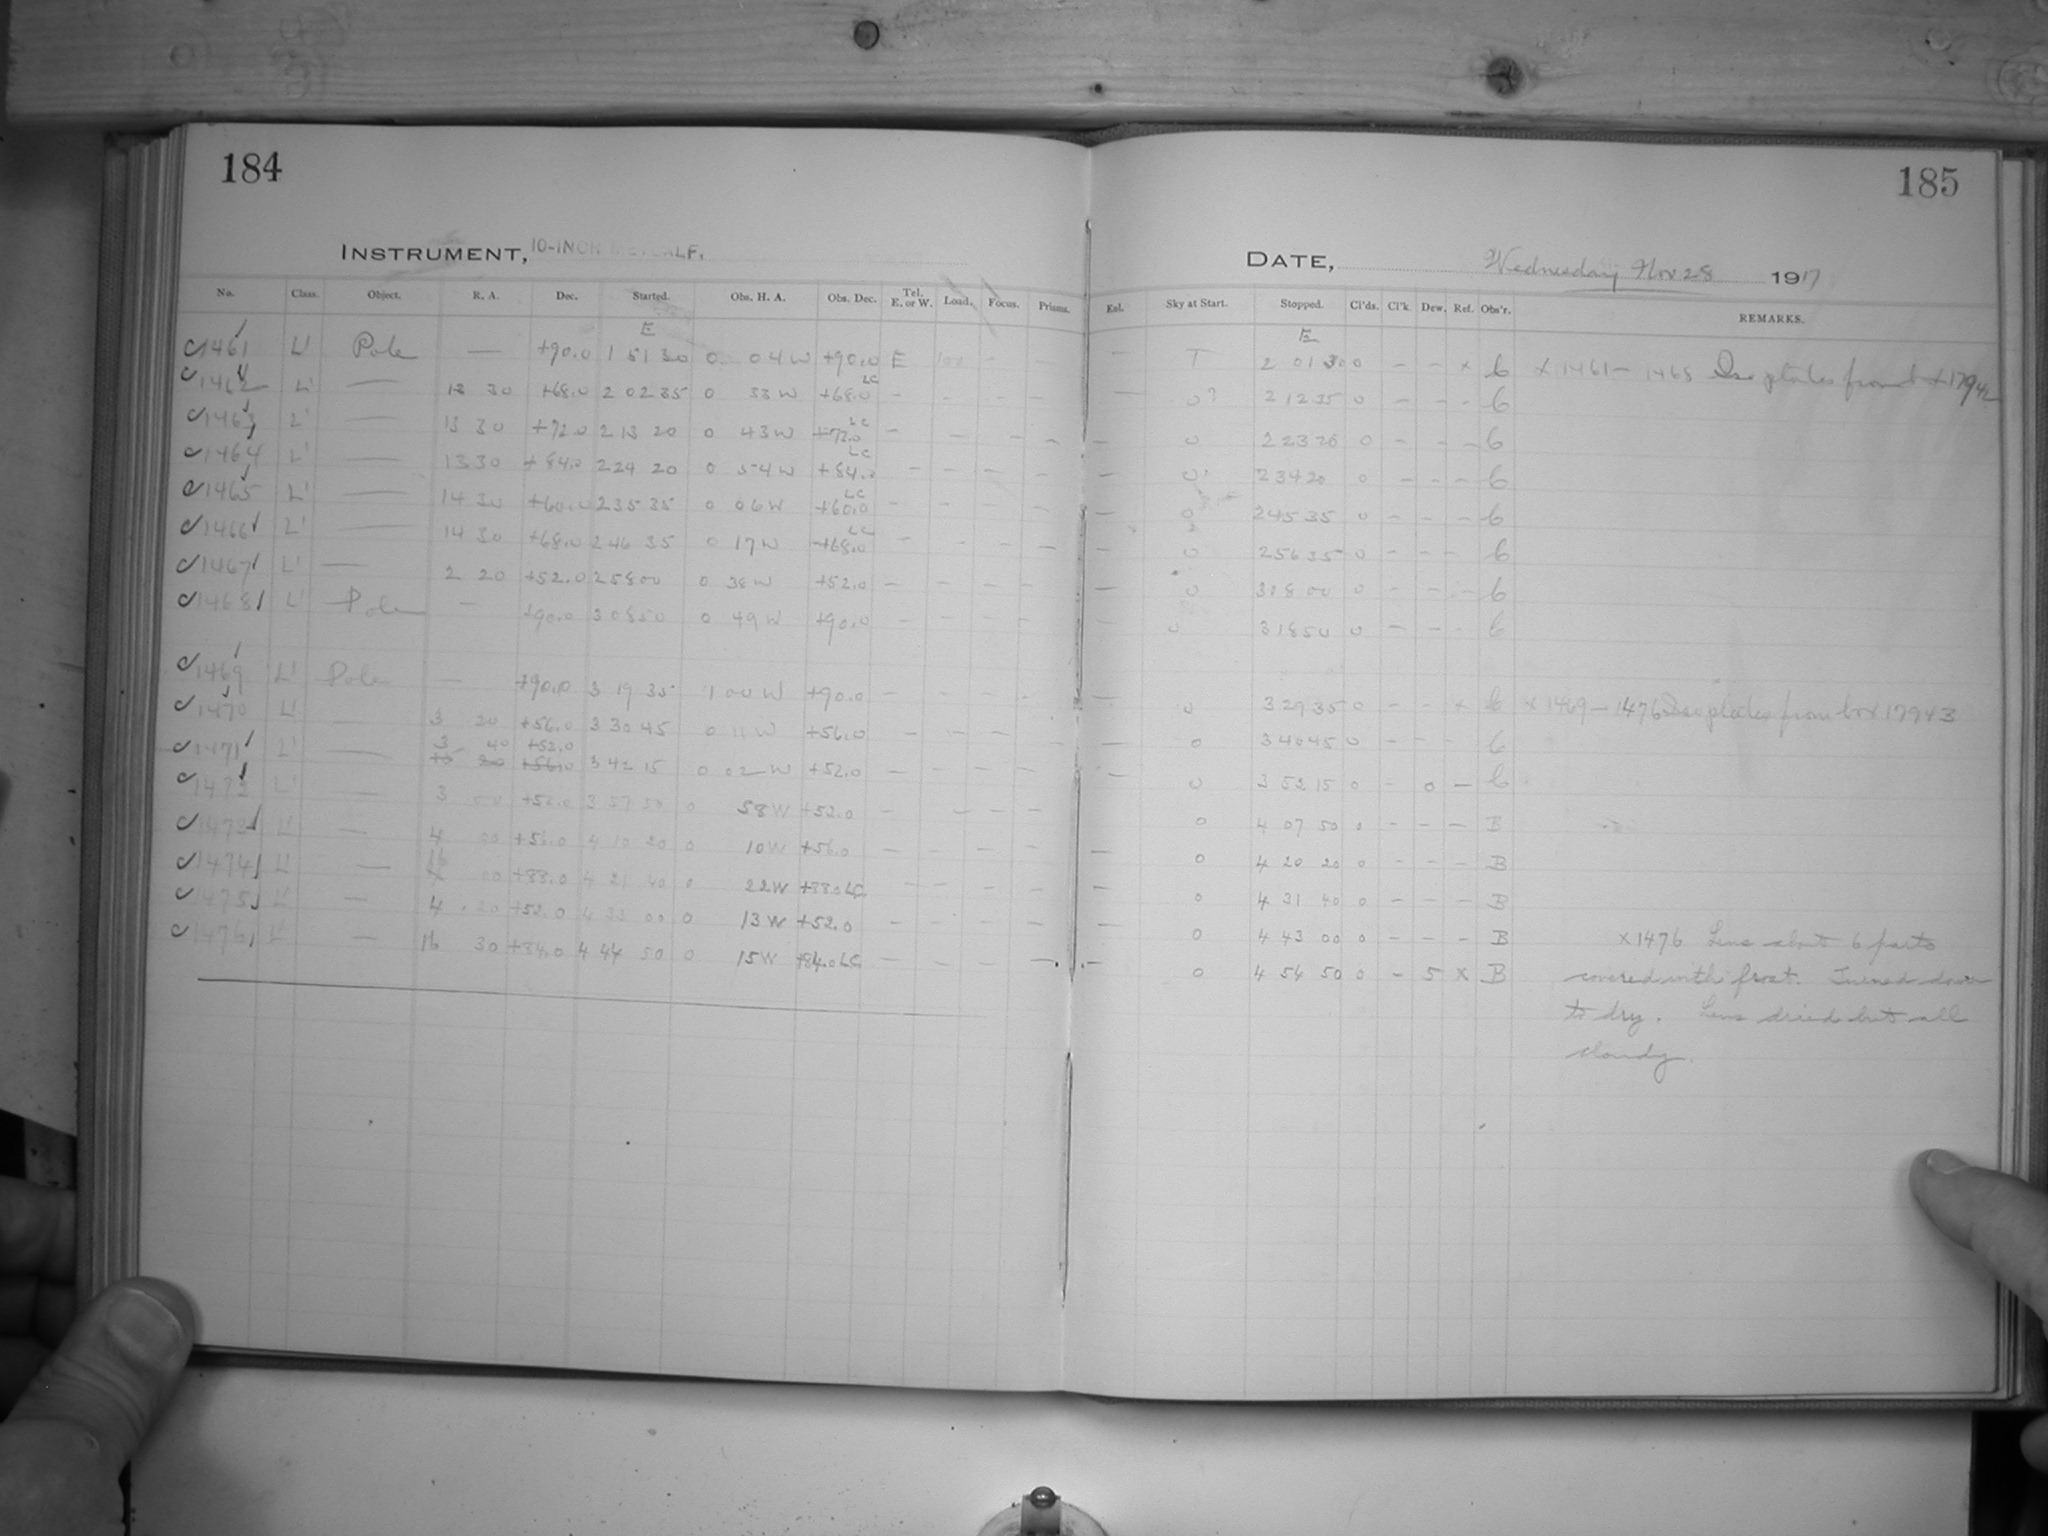 184
185
INSTRUMENT, 10-INCH METCALF.
DATE, Wednesday Nov 28 1917
No. Class. Object. R. A. Dec. Started. Obs. H. A. Obs. Dec. Tel. E. or W. Load. Focus. Prisms. Exl. Sky at Start. Stopped. Cl'ds. Cl'k. Dew. Ref. Obs'r. REMARKS.
E E
1461 L' Pole — +90.0 1 51 30 0 04 W +90.0 E 100 - — T 2 01 30 0 - - x C x 1461 - 1468 Iso plates from
1462 L' — 13 30 +68.0 2 02 35 0 33 W +68.0 LC - - - - — 0? 2 12 35 0 - - - C
1463 L' — 13 30 +72.0 2 13 20 0 43 W +72.0 LC - - - - - 0 2 23 20 0 - - - C
1464 L' — 13 30 +84.0 2 24 20 0 54 W +84.0 LC - - - - - 2 34 20 0 - - - C
1465 L' — 14 30 +60.0 2 35 35 0 06 W +60.0 LC - - - - - 0 2 45 35 0 - - - C
1466 L' — 14 30 +68.0 2 46 35 0 17 W +68.0 LC - - - - - 0 2 56 35 0 - - - C
1467 L' — 2 20 +52.0 2 58 00 0 38 W +52.0 - - - - - 0 3 08 00 0 - - - C
1468 L' Pole — +90.0 3 08 50 0 49 W +90.0 - - - - - 0 3 18 50 0 - - - C
1469 L' Pole — +90.0 3 19 35 1 00 W +90.0 - - - - - 0 3 29 35 0 - - x C x 1469 - 1476 Iso plates from box 17943
1470 L' — 3 20 +56.0 3 30 45 0 11 W +56.0 - - - - - 0 3 40 45 0 - - - C
3 40 +52.0
1471 L' — +56.0 3 42 15 0 02 W +52.0 - - - - - 0 3 52 15 0 - 0 - C
1472 L' — 3 +52.0 3 57 50 0 58 W +52.0 - - - - 0 4 07 50 0 - - - B
1473 L' — 4 00 +56.0 4 10 20 0 10 W +56.0 - - - - - 0 4 20 20 0 - - - B
1474 L' — 16 00 +88.0 4 21 40 0 22 W +88.0 LC - - - - - 0 4 31 40 0 - - - B
1475 L' — 4 20 +52.0 4 33 00 0 13 W +52.0 - - - - - 0 4 43 00 0 - - - B
1476 L' — 16 30 +84.0 4 44 50 0 15 W +84.0 LC - - - - - 0 4 54 50 0 - 5 x B
x 1476 Lens about 6 parts
covered with frost. Turned down
to dry. Lens dried but all
cloudy.